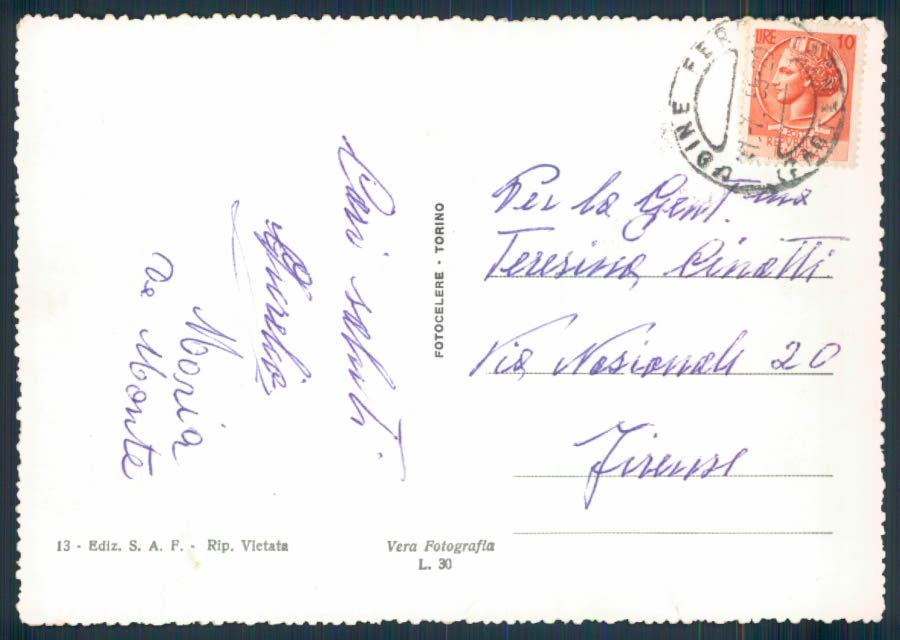 Cari saluti
Aurelia
Maria
De Monte
FOTOCELERE - TORINO
LIRE 10
UDINE FER
Per la Gent.ma
Teresina Cinatti
Via Nazionale 20
Firenze
13 - Ediz. S. A. F. - Rip. Vietata
Vera Fotografia
L. 30